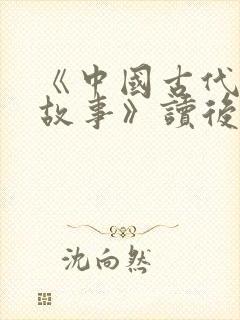 《中國古代
故事》讀後
沈向然